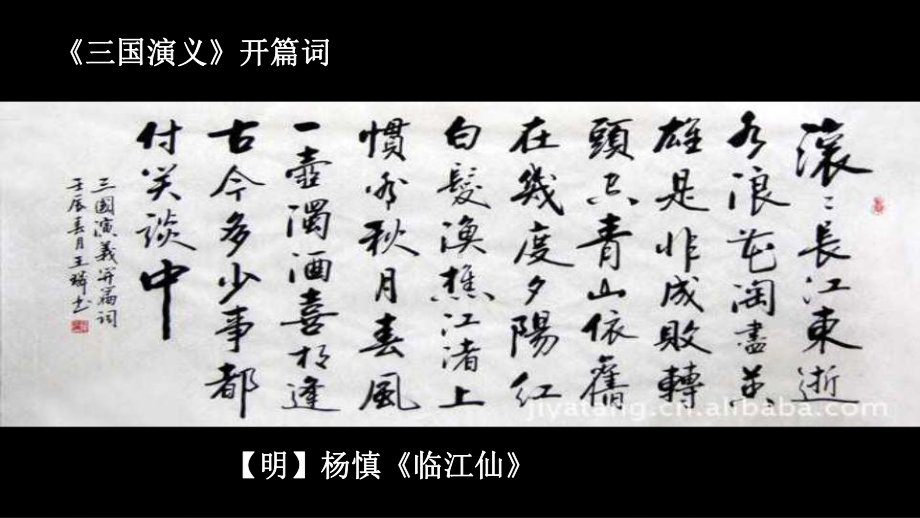 《三国演义》开篇词
滚〻長江東逝
水浪花淘盡英
雄是非成敗轉
頭空青山依舊
在幾度夕陽紅
白髮漁樵江渚上
慣看秋月春風
一壺濁酒喜相逢
古今多少事都
付笑談中
三國演義开篇词
壬辰春月王书
jiyatang.cn.alibaba.com
【明】杨慎《临江仙》